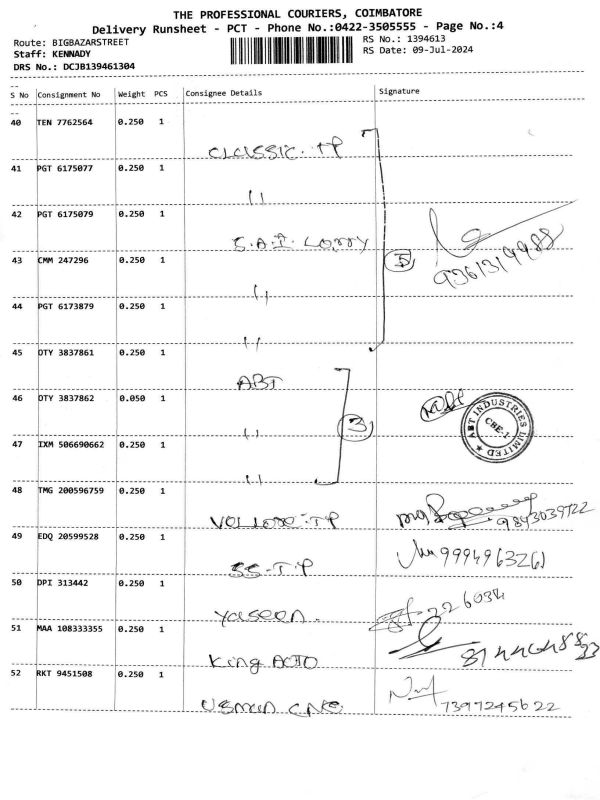 THE PROFESSIONAL COURIERS, COIMBATORE
Delivery Runsheet - PCT - Phone No.:0422-3505555 - Page No.:4
Route: BIGBAZARSTREET
RS No.: 1394613
Staff: KENNADY
RS Date: 09-Jul-2024
DRS No.: DCJB139461304
--
S No Consignment No Weight PCS Consignee Details Signature
--
40 TEN 7762564 0.250 1
CLASSIC. TP
41 PGT 6175077 0.250 1
11
42 PGT 6175079 0.250 1
S.A.I. Lorry
43 CMM 247296 0.250 1
5
9361319988
11
44 PGT 6173879 0.250 1
11
45 OTY 3837861 0.250 1
ABT
46 OTY 3837862 0.050 1
ABT INDUSTRIES LIMITED
CBE-1
11
3
47 IXM 506690662 0.250 1
11
48 TMG 200596759 0.250 1
9843039722
49 EDQ 20599528 0.250 1
9994963261
SS-TP
50 DPI 313442 0.250 1
226034
Yaseen.
51 MAA 108333355 0.250 1
King AUTO
52 RKT 9451508 0.250 1
7397245622
USMAN